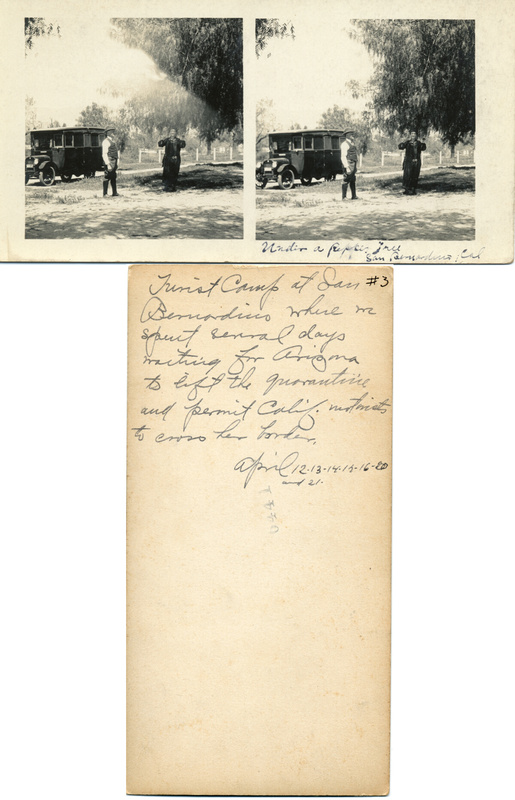 Under a Pepper Tree
San Bernardino, Cal
#3
Turist Camp at San
Bernardino where we
spent several days
waiting for Arizona
to lift the quarantine
and permit Calif. motorists
to cross her border.
April 12-13-14-15-16-20
and 21-